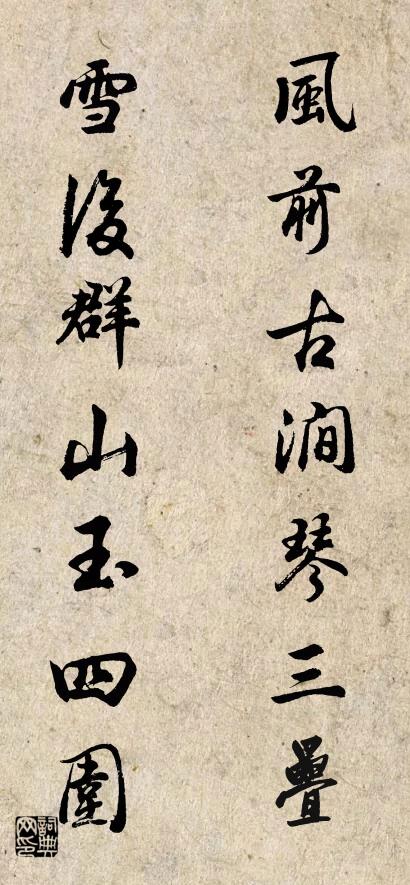 風前古澗琴三疊
雪後群山玉四圍
詞典网印